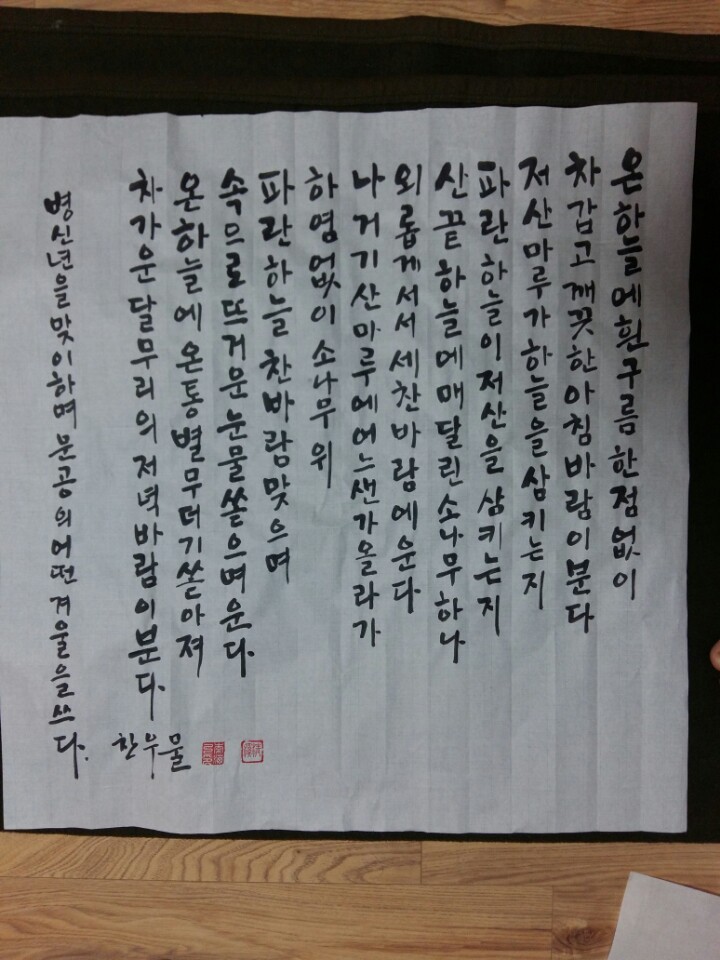 온하늘에흰구름한점없이
차갑고깨끗한아침바람이분다
저산마루가하늘을삼키는지
파란하늘이저산을삼키는지
산끝하늘에매달린소나무하나
외롭게서서세찬바람에운다
나거기산마루에어느샌가올라가
하염없이소나무위
파란하늘찬바람맞으며
속으로뜨거운눈물쏟으며운다.
온하늘에온통별무더기쏟아져
차가운달무리의저녁바람이분다.
한우물
병신년을맞이하며문공의어떤겨울을쓰다.